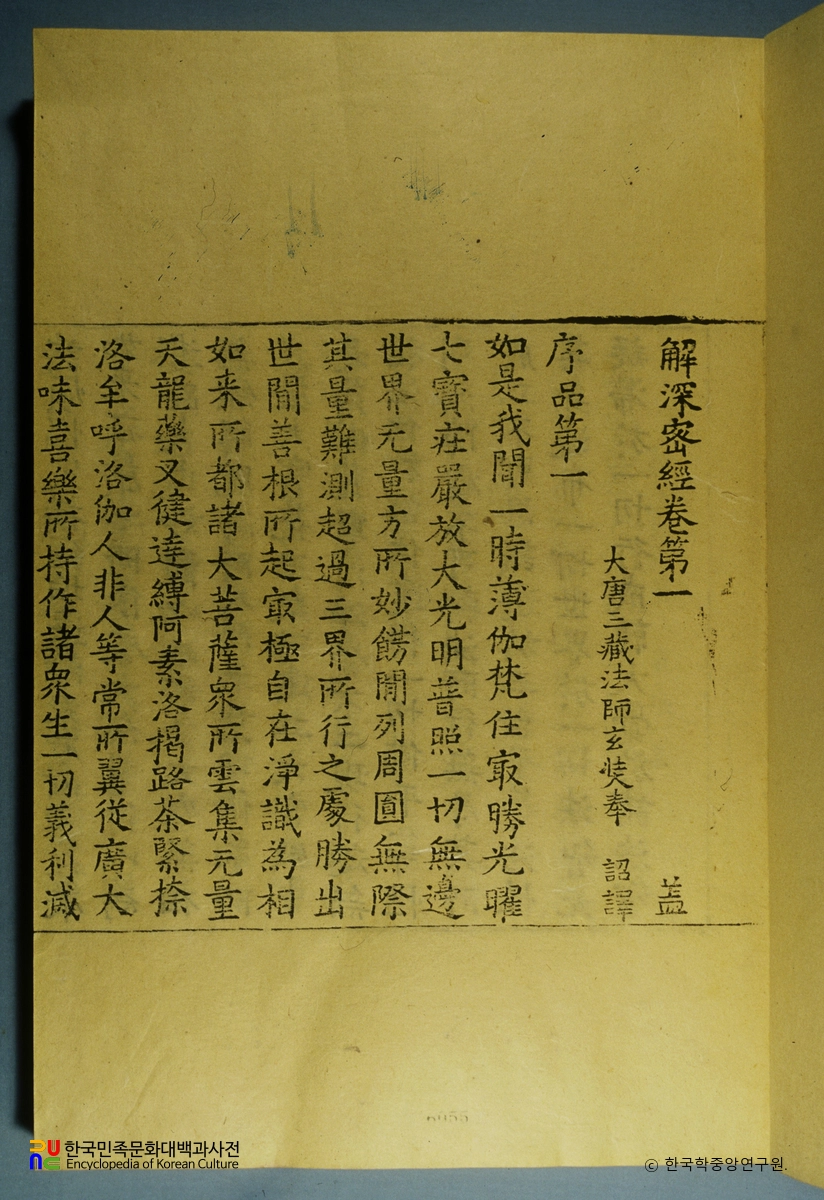 解深密經卷第一 盖
大唐三藏法師玄奘奉 詔譯
序品第一
如是我聞一時薄伽梵住㝡勝光曜
七寶莊嚴放大光明普照一切無邊
世界无量方所妙餝間列周圎無際
其量難測超過三界所行之處勝出
世間善根所起㝡極自在淨識為相
如来所都諸大菩薩衆所雲集无量
天龍藥叉健達縛阿素洛揭路荼緊捺
洛牟呼洛伽人非人等常所翼從廣大
法味喜樂所持作諸衆生一切義利滅
한국민족문화대백과사전
Encyclopedia of Korean Culture
© 한국학중앙연구원.